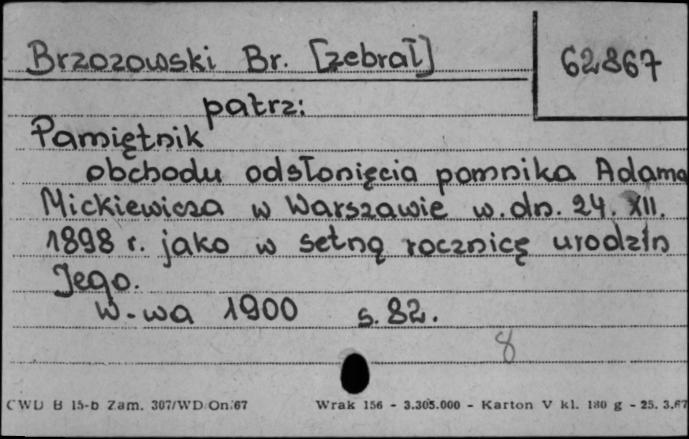 Brzozowski Br. [zebrał]
62867
patrz:
Pamiętnik
obchodu odsłonięcia pomnika Adama
Mickiewicza w Warszawie w.dn. 24. XII.
1898 r. jako w setną rocznicę urodzin
Jego.
W-wa 1900 s. 82.
8
CWD B 15-b Zam. 307/WD/On/67 Wrak 156 - 3.305.000 - Karton V kl. 180 g - 25. 3.67